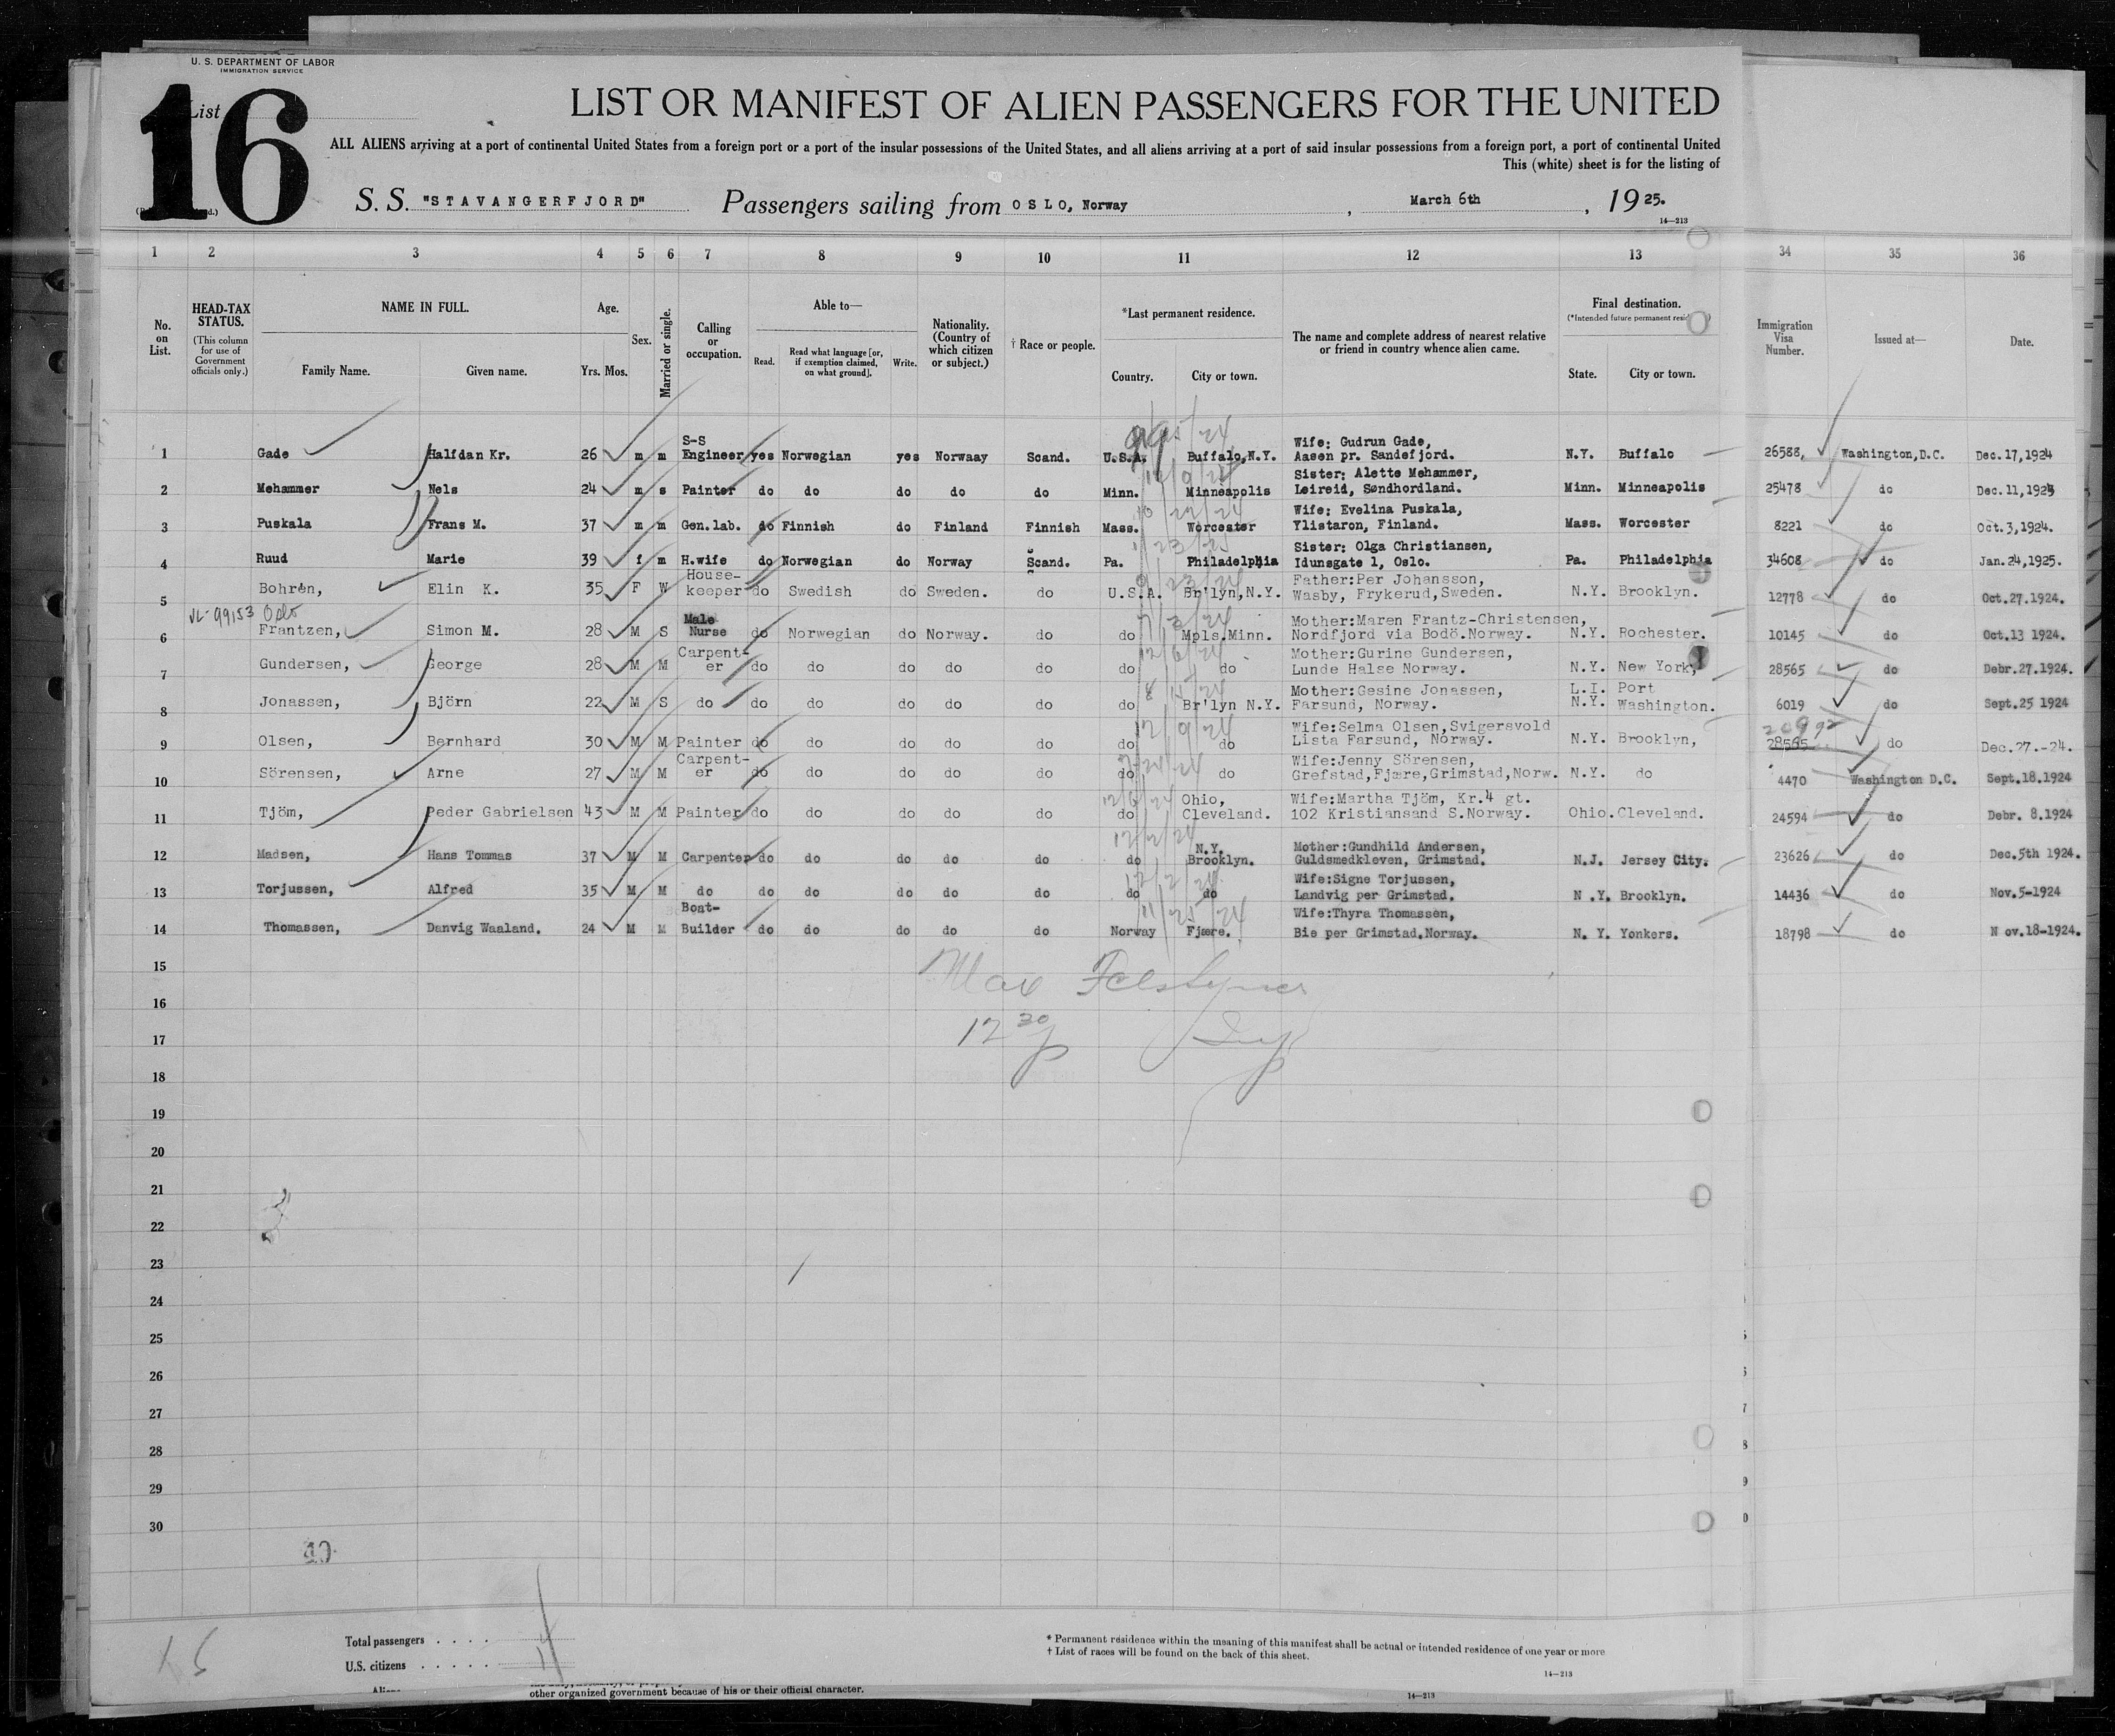 U. S. DEPARTMENT OF LABOR
IMMIGRATION SERVICE
List 16
LIST OR MANIFEST OF ALIEN PASSENGERS FOR THE UNITED
ALL ALIENS arriving at a port of continental United States from a foreign port or a port of the insular possessions of the United States, and all aliens arriving at a port of said insular possessions from a foreign port, a port of continental United
This (white) sheet is for the listing of
S. S. "STAVANGERFJORD" Passengers sailing from OSLO, Norway , March 6th , 1925.
14—213
1 2 3 4 5 6 7 8 9 10 11 12 13 34 35 36
No. on List.
HEAD-TAX STATUS.
(This column for use of Government officials only.)
NAME IN FULL.
Family Name. Given name.
Age.
Yrs. Mos.
Sex.
Married or single.
Calling or occupation.
Able to—
Read. Read what language [or, if exemption claimed, on what ground]. Write.
Nationality. (Country of which citizen or subject.)
† Race or people.
*Last permanent residence.
Country. City or town.
The name and complete address of nearest relative or friend in country whence alien came.
Final destination.
(*Intended future permanent resid
State. City or town.
Immigration Visa Number.
Issued at—
Date.
1 Gade Halfdan Kr. 26 m m S-S Engineer yes Norwegian yes Norwaay Scand. U.S.A. Buffalo,N.Y. Wife: Gudrun Gade, Aasen pr. Sandefjord. N.Y. Buffalo 26588, Washington,D.C. Dec.17,1924
2 Mehammer Nels 24 m s Painter do do do do do Minn. Minneapolis Sister: Alette Mehammer, Leireid, Søndhordland. Minn. Minneapolis 25478 do Dec.11,1925
3 Puskala Frans M. 37 m m Gen.lab. do Finnish do Finland Finnish Mass. Worcester Wife: Evelina Puskala, Ylistaron, Finland. Mass. Worcester 8221 do Oct.3,1924.
4 Ruud Marie 39 f m H.wife do Norwegian do Norway Scand. Pa. Philadelphia Sister: Olga Christiansen, Idunsgate 1, Oslo. Pa. Philadelphia 34608 do Jan.24,1925.
5 Bohrén, Elin K. 35 F W House-keeper do Swedish do Sweden. do U.S.A. Br'lyn,N.Y. Father:Per Johansson, Wasby, Frykerud,Sweden. N.Y. Brooklyn. 12778 do Oct.27.1924.
VL-99153 Oslo
6 Frantzen, Simon M. 28 M S Male Nurse do Norwegian do Norway. do do Mpls.Minn. Mother:Maren Frantz-Christensen, Nordfjord via Bodö.Norway. N.Y. Rochester. 10145 do Oct.13 1924.
7 Gundersen, George 28 M M Carpent-er do do do do do do do Mother:Gurine Gundersen, Lunde Halse Norway. N.Y. New York, 28565 do Debr.27.1924.
8 Jonassen, Björn 22 M S do do do do do do do Br'lyn N.Y. Mother:Gesine Jonassen, Farsund, Norway. L.I. N.Y. Port Washington. 6019 do Sept.25 1924
20992
9 Olsen, Bernhard 30 M M Painter do do do do do do do Wife:Selma Olsen,Svigersvold Lista Farsund, Norway. N.Y. Brooklyn, 28565 do Dec.27.-24.
10 Sörensen, Arne 27 M M Carpent-er do do do do do do do Wife:Jenny Sörensen, Grefstad,Fjære,Grimstad,Norw. N.Y. do 4470 Washington D.C. Sept.18.1924
11 Tjöm, Peder Gabrielsen 43 M M Painter do do do do do do Ohio, Cleveland. Wife:Martha Tjöm, Kr.4 gt. 102 Kristiansand S.Norway. Ohio. Cleveland. 24594 do Debr. 8.1924
12 Madsen, Hans Tommas 37 M M Carpenter do do do do do do N.Y. Brooklyn. Mother:Gundhild Andersen, Guldsmedkleven, Grimstad. N.J. Jersey City. 23626 do Dec.5th 1924.
13 Torjussen, Alfred 35 M M do do do do do do do do Wife:Signe Torjussen, Landvig per Grimstad. N .Y. Brooklyn. 14436 do Nov.5-1924
14 Thomassen, Danvig Waaland. 24 M M Boat-Builder do do do do do Norway Fjære. Wife:Thyra Thomassen, Bie per Grimstad.Norway. N. Y. Yonkers. 18798 do N ov.18-1924.
15
Max
16
12 30 p
17
18
19
20
21
22
23
24
25
26
27
28
29
30
Total passengers . . . .
U.S. citizens . . . . .
* Permanent residence within the meaning of this manifest shall be actual or intended residence of one year or more
† List of races will be found on the back of this sheet.
14—213
other organized government because of his or their official character.
14—213